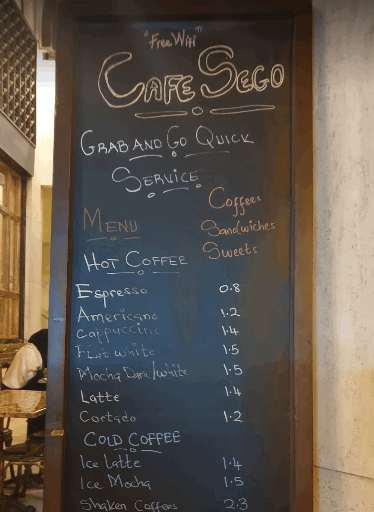 "Free Wifi"
CAFE SEGO
GRAB AND GO QUICK
SERVICE
Coffees
MENU
Sandwiches
Sweets
HOT COFFEE
Espresso 0.8
Americano 1.2
Cappuccino 1.4
FLat white 1.5
Mocha Dark/white 1.5
Latte 1.4
Cortado 1.2
COLD COFFEE
Ice latte 1.4
Ice Mocha 1.5
Shaken Coffees 2.3